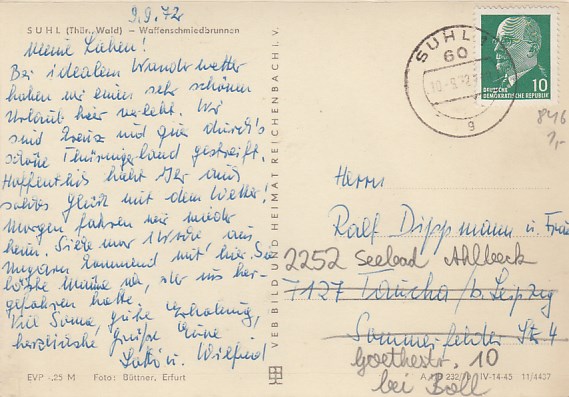 9.9.72
SUHL (Thür. Wald) — Waffenschmiedbrunnen
Meine Lieben!
Bei idealem Wanderwetter
haben wir einen sehr schönen
Urlaub hier verlebt. Wir
sind kreuz und quer durch's
schöne Thüringerland gestreift.
Hoffentlich habt Ihr auch
solches Glück mit dem Wetter!
Morgen fahren wir wieder
heim. Silke war 1 Woche aus
Ungarn kommend mit hier.
uns her-
gefahren hatte.
Viel Sonne, gute Erholung,
herzliche Grüße Eure
u. Wilfried
EVP -,25 M Foto: Büttner, Erfurt
VEB BILD UND HEIMAT REICHENBACH I. V.
SUHL 1
60
10.-9.72
g
DEUTSCHE
DEMOKRATISCHE REPUBLIK
10
846
1,-
Herrn
Ralf Dippmann u. Frau
2252 Seebad Ahlbeck
7127 Taucha/b. Leipzig
Sommerfelder Str. 4
Goethestr. 10
bei Boll
IV-14-45 11/4427